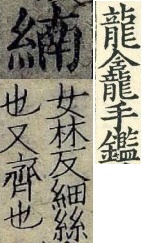 龍龕手鑑
女林反細絲
也又齊也